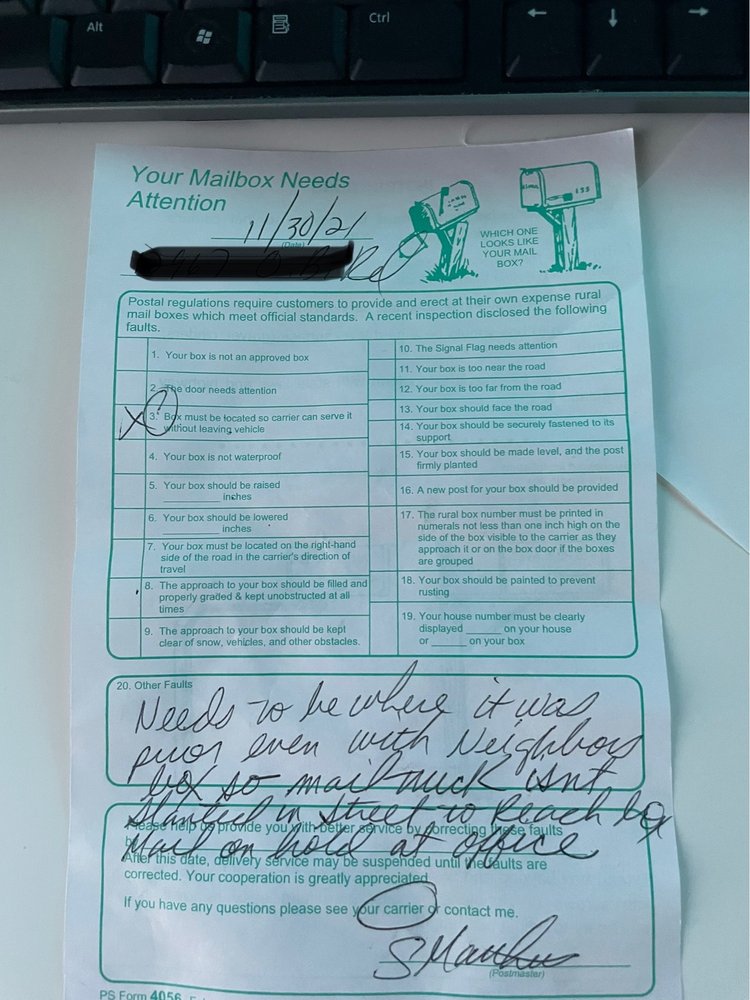 Alt
Ctrl
Your Mailbox Needs
Attention
11/30/21
(Date)
WHICH ONE
LOOKS LIKE
YOUR MAIL
BOX?
Postal regulations require customers to provide and erect at their own expense rural
mail boxes which meet official standards. A recent inspection disclosed the following
faults.
1. Your box is not an approved box
2. The door needs attention
X 3. Box must be located so carrier can serve it
without leaving vehicle
4. Your box is not waterproof
5. Your box should be raised
______ inches
6. Your box should be lowered
______ inches
7. Your box must be located on the right-hand
side of the road in the carrier's direction of
travel
8. The approach to your box should be filled and
properly graded & kept unobstructed at all
times
9. The approach to your box should be kept
clear of snow, vehicles, and other obstacles.
10. The Signal Flag needs attention
11. Your box is too near the road
12. Your box is too far from the road
13. Your box should face the road
14. Your box should be securely fastened to its
support
15. Your box should be made level, and the post
firmly planted
16. A new post for your box should be provided
17. The rural box number must be printed in
numerals not less than one inch high on the
side of the box visible to the carrier as they
approach it or on the box door if the boxes
are grouped
18. Your box should be painted to prevent
rusting
19. Your house number must be clearly
displayed ______ on your house
or ______ on your box
20. Other Faults
Needs to be where it was
prior even with Neighbors
box so mail truck isnt
slanted in street to reach box
Please help us provide you with better service by correcting these faults
Mail on hold at office
After this date, delivery service may be suspended until the faults are
corrected. Your cooperation is greatly appreciated.
If you have any questions please see your carrier or contact me.
(Postmaster)
PS Form 4056